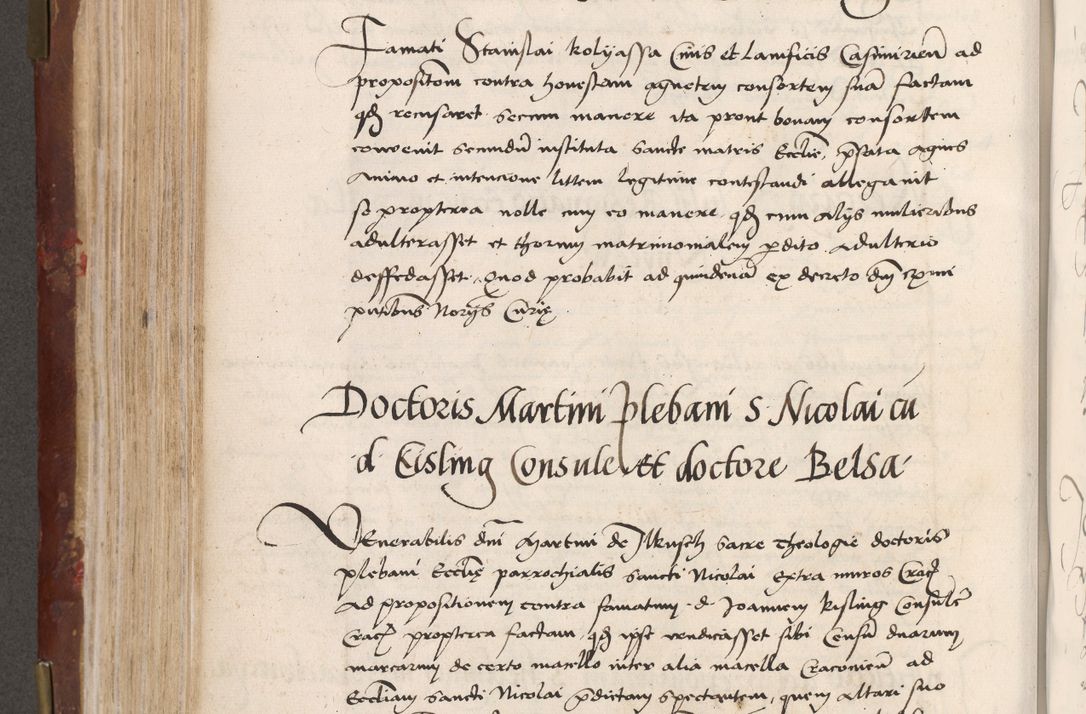 Famati Stanislai Kolyassa Civis et Lanificis Casimirien ad
propositom contra honestam Agnetem consortem sua factam
qd recusaret secum manere ita pront bonam consortem
convenit secundu instituta sancte matris Ecclie, pfata Agnes
Animo et intencione littem legitime contestandi allegavit
se propterea nolle cum eo manere, qd cum alys mulieribus
adulterasset et thorum matrimonialem pdito Adulterio
deffedasset. Quod probabit ad quindena ex decreto dni
Norys Curie
Doctoris Martini plebani S. Nicolai cu
d. Kisling Consule et doctore Belsa
Venerabilis dni Martini de Ilkusch sacre Theologie doctoris
plebani Ecclie parrochialis Sancti Nicolai extra muros Crac
Ad propositionem contra famatum d. Joannem Kisling Consule
Crac propterea factam, qd ipse vendicasset sibi Censu duarum
marcarum de certo macello inter alia macella Cracovien ad
Eccliam Sancti Nicolai pdictam spectantem, quem altari suo